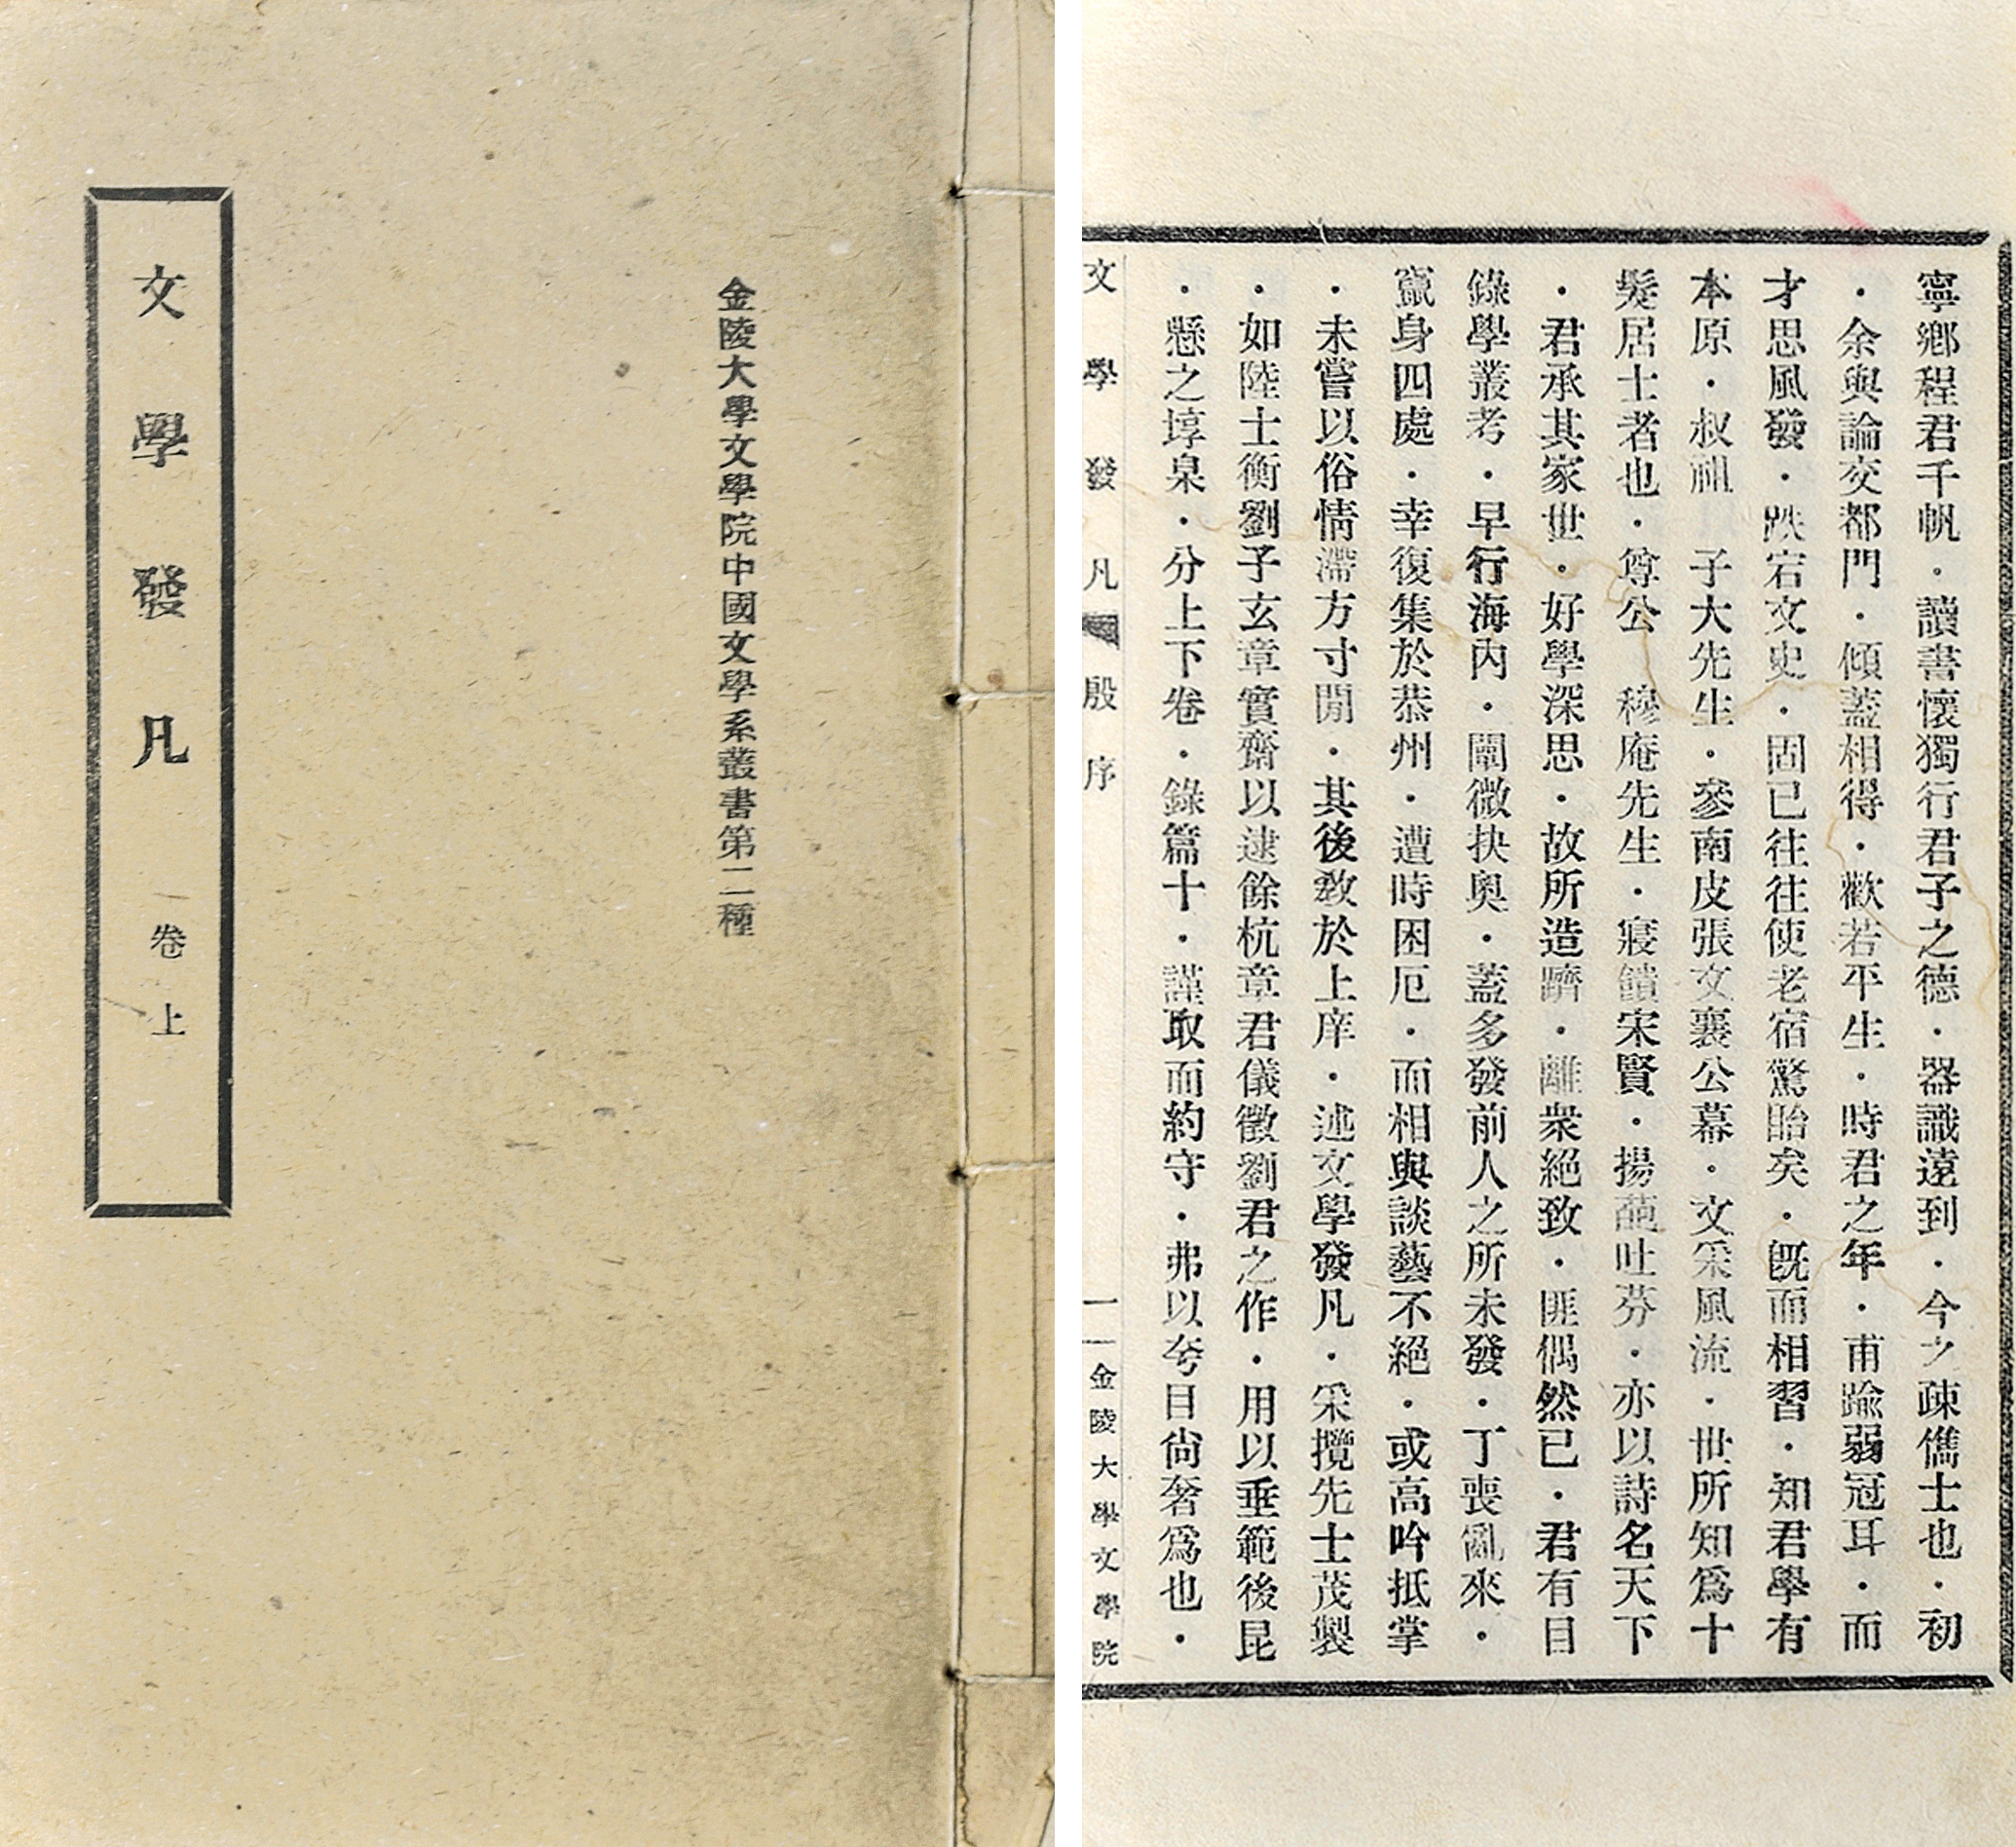 金陵大學文學院中國文學系叢書第二種
文學發凡 卷上
寧鄉程君千帆．讀書懷獨行君子之德．器識遠到．今之疎儁士也．初
．余與論交都門．傾蓋相得．歡若平生．時君之年．甫踰弱冠耳．而
才思風發．跌宕文史．固已往往使老宿驚眙矣．既而相習．知君學有
本原．叔祖　子大先生．參南皮張文襄公幕．文采風流．世所知爲十
髮居士者也．尊公　穆庵先生．寢饋宋賢．揚葩吐芬．亦以詩名天下
．君承其家世．好學深思．故所造躋．離衆絕致．匪偶然已．君有目
錄學叢考．早行海內．闡微抉奥．蓋多發前人之所未發．丁喪亂來．
竄身四處．幸復集於恭州．遭時困厄．而相與談藝不絕．或高吟抵掌
．未嘗以俗情滯方寸閒．其後敎於上庠．述文學發凡．采攬先士茂製
．如陸士衡劉子玄章實齋以逮餘杭章君儀徵劉君之作．用以垂範後昆
．懸之埻臬．分上下卷．錄篇十．謹取而約守．弗以夸目尙奢爲也．
文學發凡　殷序　一　金陵大學文學院